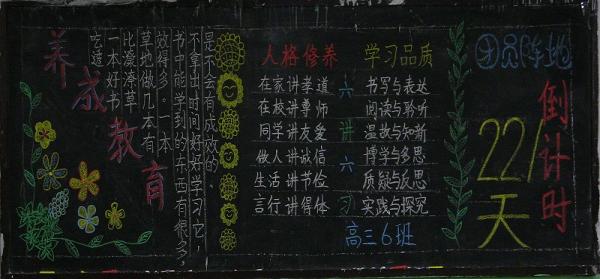 养成教育
是不会有成效的。
不拿出时间好好学习它，
书中能学到的东西有很多，
效得多。一本
草地做几本有
比漫漆草
一本好书
吃造
人格修养
在家讲孝道
在校讲尊师
同学讲友爱
做人讲诚信
生活讲节俭
言行讲得体
六讲六习
学习品质
书写与表达
阅读与聆听
温故与知新
博学与多思
质疑与反思
实践与探究
高三6班
团员阵地
倒计时
221天